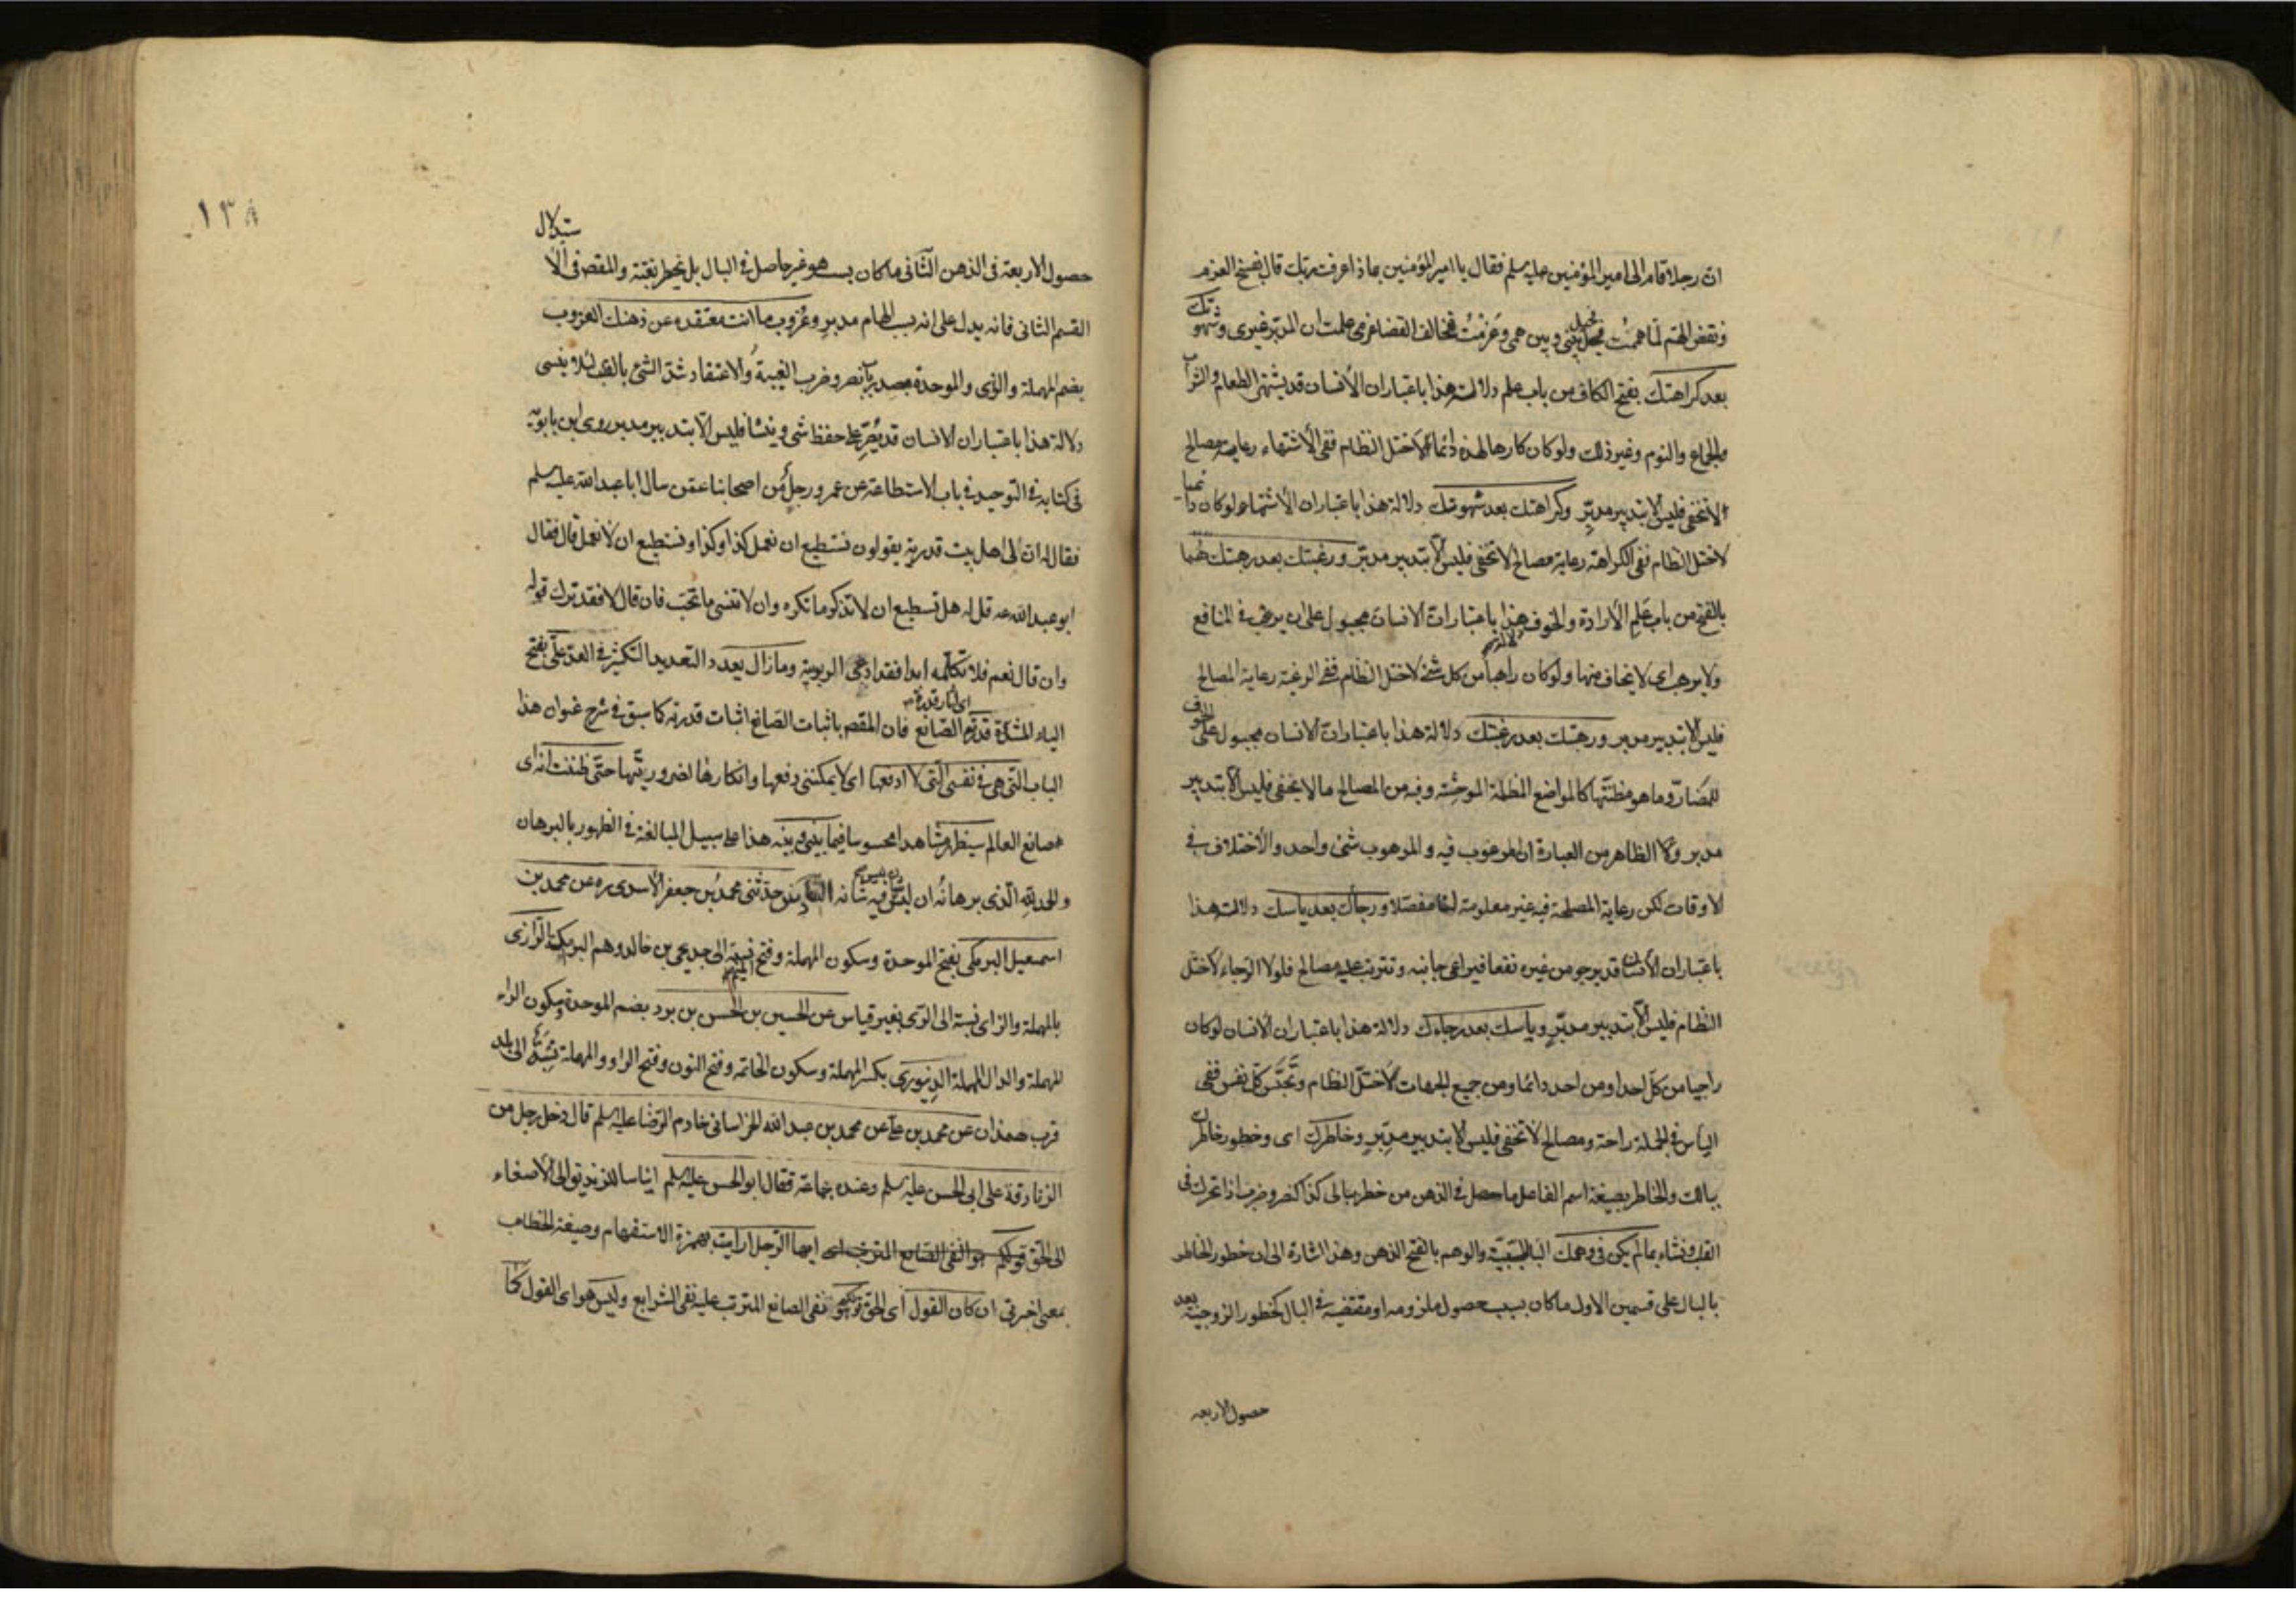 ان رجلا قام الى امير المؤمنين عليه سلم فقال يا امير المؤمنين بماذا عرفت ربك قال بفسخ العزم
ونقض الهم لما هممت فحيل بيني وبين همي وعزمت فخالف القضا عزمي علمت ان المدبر غيري وشهوتك
بعد كراهتك بفتح الكاف من باب علم دلالت هذا باعتبار ان الأنسان قد يشتهى الطعام والشراب
والجماع والنوم وغير ذلك ولو كان كارها لهذه دائما لأختل النظام ففى الأشتهاء رعاية مصالح
لا تخفى فليس الا بتدبير مدبّر وكراهتك بعد شهوتك دلالة هذا باعتبار ان الأشتهاء لو كان دائميا
لاختل النظام ففى الكراهة رعاية مصالح لا تخفى فليس الا بتدبير مدبّر ورغبتك بعد رهبتك هما
بالفتح من باب علم الأرادة والخوف هذا باعتبار ان الانسان مجبول على ان يرغب فى المنافع
ولا يرهب اى لا يخاف منها ولو كان راهبا من كل شئ لاختل النظام ففى الرغبة رعاية المصالح
فليس الا بتدبير مدبر ورهبتك بعد رغبتك دلالة هذا باعتبار ان الانسان مجبول على الخوف
للمضارّ وما هو مظنتها كالمواضع المظلمة الموحشة وفيه من المصالح ما لا يخفى فليس الا بتدبير
مدبر الظاهر من العبارة ان المرغوب فيه والمرهوب شئ واحد والأختلاف فى
الاوقات لكن رعاية المصلحة فيه غير معلومة لنا مفصلا ورجاك بعد ياسك دلالت هذا
باعتبار ان الأنسان قد يرجو من غيره نفعا فيراعى جانبه وتترتب عليه مصالح فلولا الرجاء لأختل
النظام فليس الا بتدبير مدبّر وياسك بعد رجاءك دلالة هذا باعتبار ان الأنسان لو كان
راجيا من كل احد او من احد دائما ومن جميع الجهات لأختلّ النظام كلّ نفس ففى
الياس فى الجملة راحة ومصالح لا تخفى فليس الا بتدبير مدبّر وخاطرك اى وخطور خاطر كان
ببالك والخاطر بصيغة اسم الفاعل ما حصل فى الذهن من خطر ببالى كذا كنصر وضرب اذا تحرك فى
القلب ونشاء بما لم يكن فى وهمك الباء للسببيّة والوهم بالفتح الذهن وهذا اشارة الى ان خطور الخاطر
بالبال على قسمين الاول ما كان بسبب حصول ملزومه او مقتضيه فى البال كخطور الزوجية بعد
حصول الاربعه
١٣٨
حصول الاربعة فى الذهن الثانى ما كان بسبب هو غير حاصل فى البال بل يخطر بغتة والمقصود فى الاستدلال
القسم الثانى فانه يدل على انه بسبب الهام مدبر وعزوب ما انت معتقده عن ذهنك العزوب
بضم المهملة والزى والموحدة مصدر باب نصر وضرب الغيبة والاعتقاد شد الشئ بالقلب لئلا ينسى
دلالة هذا باعتبار ان الانسان قد على حفظ شى وينسا فليس الا بتدبير مدبر روى ابن بابويه
فى كتابه فى التوحيد فى باب الاستطاعة عن عمرو رجل من اصحابنا عمن سال ابا عبد الله عليه سلم
فقال له ان لى اهل بيت قدرية يقولون نستطيع ان نعمل كذا وكذا ونستطيع ان لا نعمل قال فقال
ابو عبد الله عه قل له هل تستطيع ان لا تذكر ما تكره وان لا تنسى ما تحب فان قال لا فقد ترك قوله
وان قال نعم فلا تكلمه ابدا فقد ادعى الربوبية وما زال يعدد التعديد التكثير فى العد علىّ بفتح
الياء المشددة قدرته اى اثار قدرة الصانع فان المقصود باثبات الصانع اثبات قدرته كما سبق فى شرح عنوان هذا
الباب التى هى فى نفسى التى لا ادفعها اى لا يمكننى دفعها وانكارها لضروريتها حتى ظننت انه اى
صانع العالم سيظهر مشاهدا محسوسا فيما بينى وبينه هذا على سبيل المبالغة فى الظهور بالبرهان
والحمد لله الذى برهانه ان ليس فيه شانه حدثنى محمد بن جعفر الأسدى ره عن محمد بن
اسمعيل البرمكى بفتح الموحدة وسكون المهملة وفتح الميم نسبة الى جد يحيى بن خالد وهم البرامكة الرازى
بالمهملة والزاى نسبة الى الرّى بغير قياس عن الحسين بن الحسن بن برد بضم الموحدة وسكون الراء
المهملة والدال المهملة الدينورى بكسر المهملة وسكون الخاتمه وفتح النون وفتح الواو والمهملة نسبة الى بلد
قرب همدان عن محمد بن على عن محمد بن عبد الله الخراسانى خادم الرضا عليه سلم قال دخل رجل من
الزنادقة على ابى الحسن عليه سلم وعنده جماعة فقال ابو الحسن عليه سلم ايناسا للزنديق الى الأصغاء
الى الحق ايها الرجل ارايت بهمزة الاستفهام وصيغة الخطاب
بمعنى اخبرنى ان كان القول اى الحق قولكم وهو نفى الصانع المترتب عليه نفى الشرايع وليس هو اى القول كما